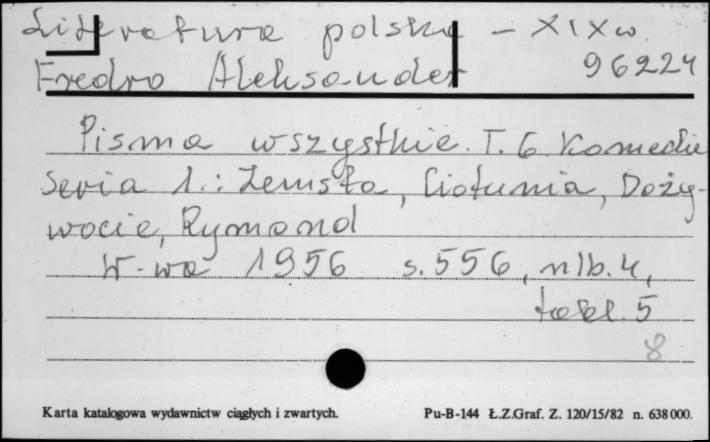 Literatura polska – XIX w
Fredro Aleksander 96224
Pisma wszystkie. T. 6 Komedie
Seria 1.: Zemsta, Ciotunia, Doży-
wocie, Rymond
W-wa 1956 s. 556, nlb. 4,
tabl. 5
8
Karta katalogowa wydawnictw ciągłych i zwartych. Pu-B-144 Ł.Z.Graf. Z. 120/15/82 n. 638000.